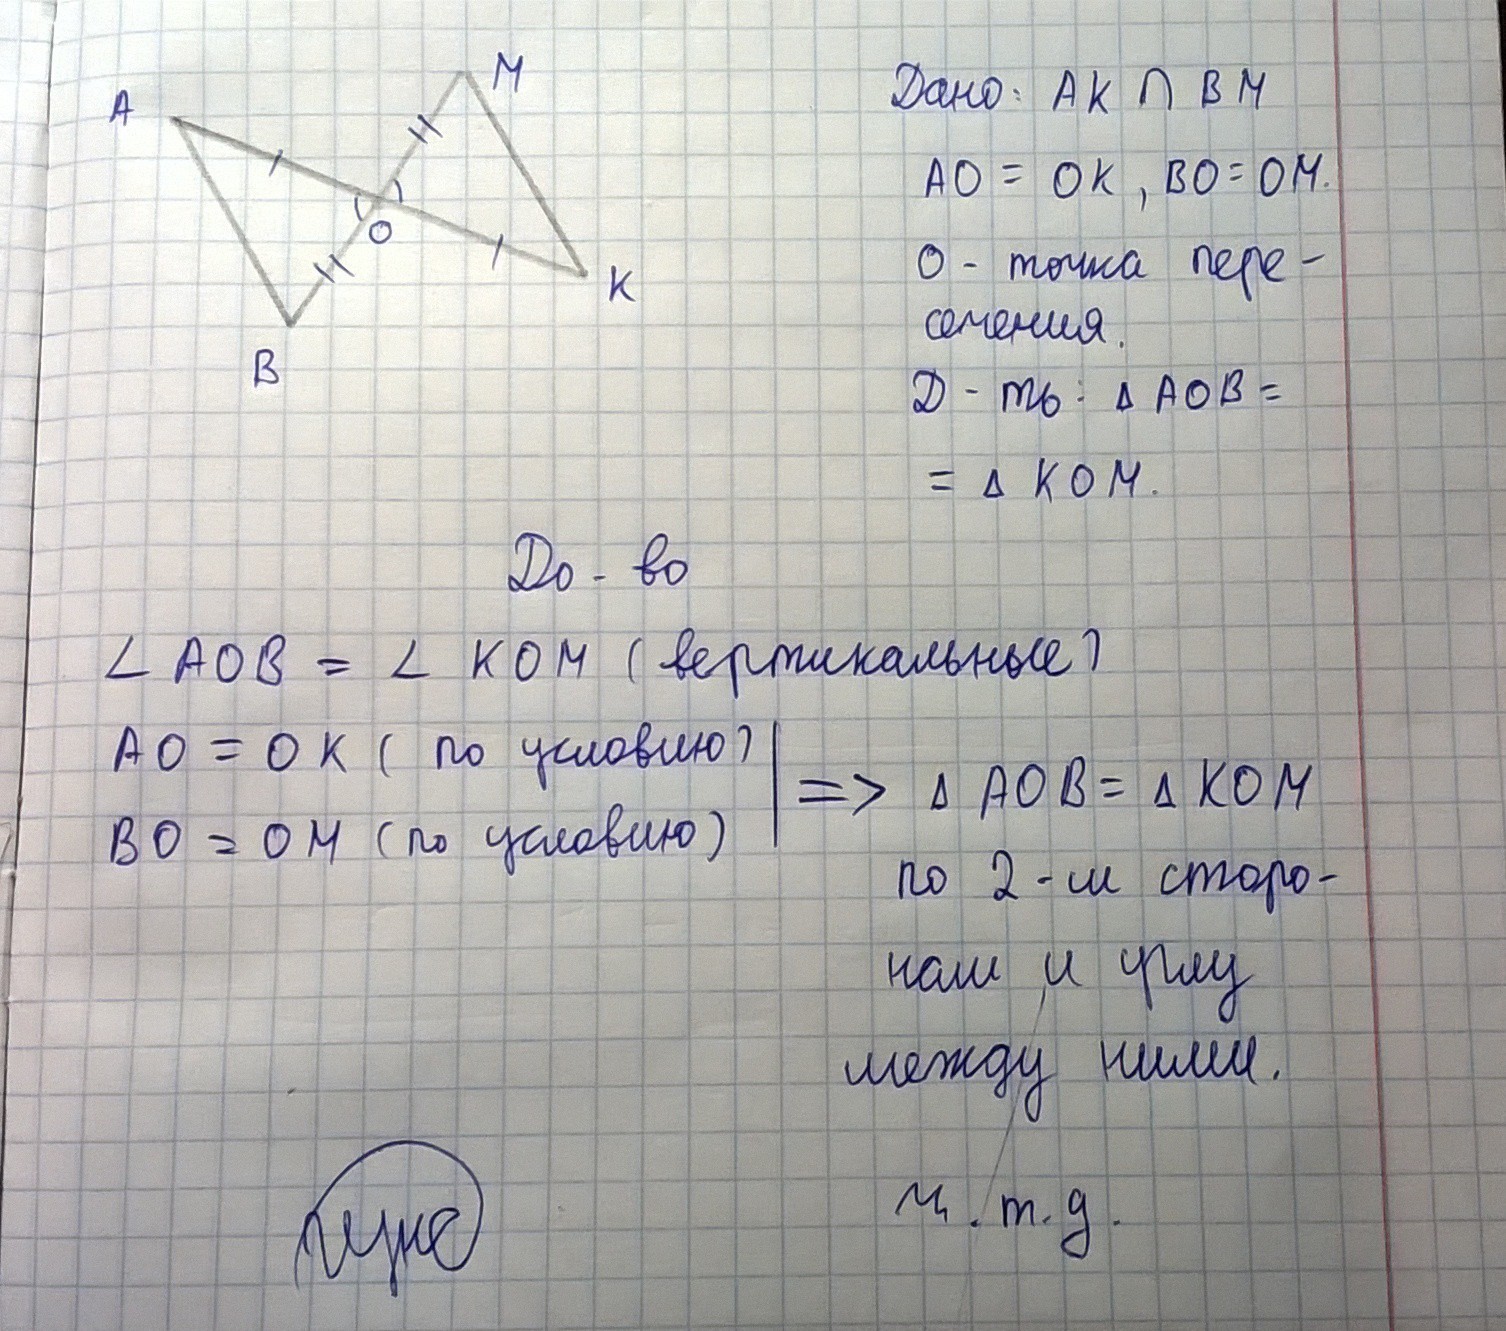 A
M
O
K
B
Дано: AK ∩ BM
AO = OK, BO = OM.
O - точка пере-
сечения.
Д-ть: Δ AOB =
= Δ KOM.
До-во
∠ AOB = ∠ KOM (вертикальные)
AO = OK (по условию)
BO = OM (по условию)
=> Δ AOB = Δ KOM
по 2-м сторо-
нам и углу
между ними.
ч.т.д.